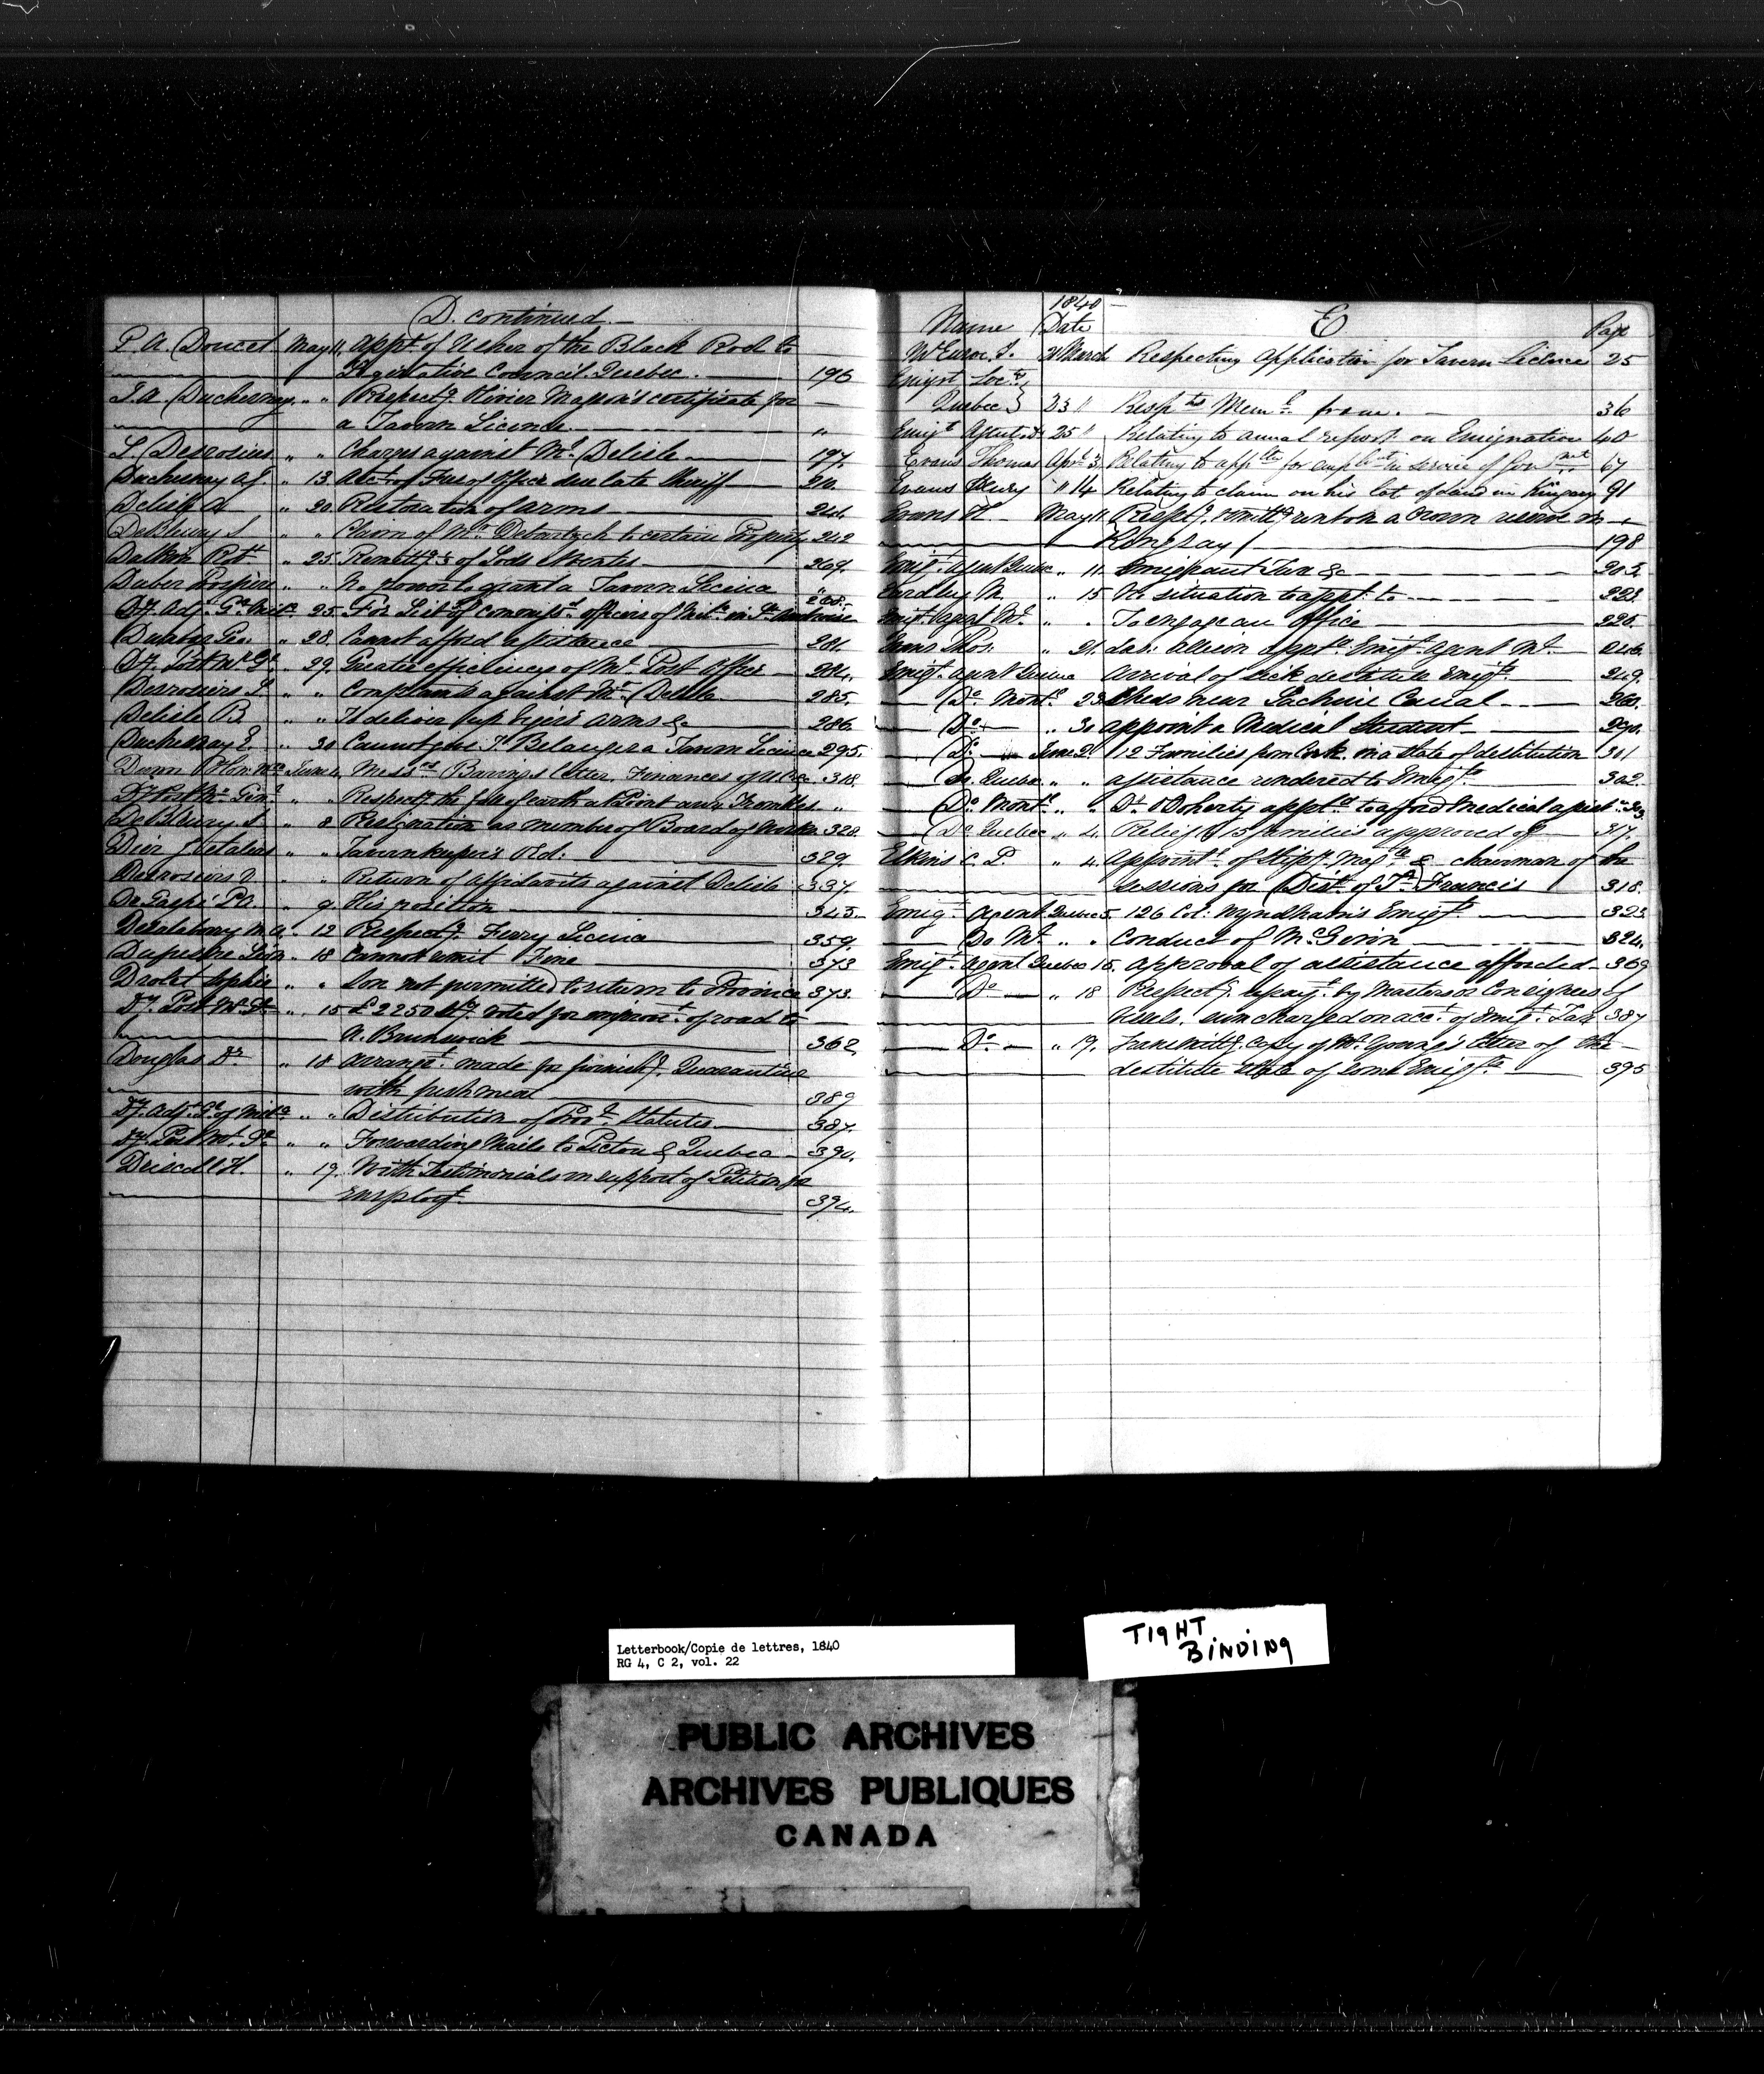 D. continued
P. A. Doucet May 11 Appt. of Usher of the Black Rod to
Legislative Council Quebec. 196
Duchesnay " " Respectg. Olivier Masson's certificate for
a Tavern Licence "
L. Desrosiers " " Charges against Mr. Delisle 197.
Duchesnay A J. " 13 Acct of Fees of Office due late Sheriff
Delisle A " 20 Restoration of arms
DeBleury S " " Claim of Mr. to certain Property 242
Dalton Robt " 25. of
Prospère " " No power to grant a Tavern Licence "
Dy. Adj. Gl. Mila. 25. For List of commissd. officers of Mila. in
Geo. " 28. Cannot afford assistance 281.
Dy. Post Mr. Gl. " 29. Greater efficiency of Mt. Post Office 284.
Desrosiers L " " Complaints against Mr. Delisle 285.
Delisle B " " To deliver up arms &c 286
Duchesnay E. " 30 Cannot give J. Belanger a Tavern Licence 295.
Dunn Hon. June 4. Messrs Barings letter, Finances of U. Ca. 318.
Dy Post Mr. Genl " " Respectg. the fall of earth at Point aux Trembles "
DeBleury S " 8 Resignation as member of Board of Works 328.
Dier " " Tavernkeeper's 329.
Desrosiers " " Return of affidavits against Delisle 337
De Gaspé P. " 9. His position 343.
M. A. " 12 Respectg. Ferry Licence 359.
" 18 Cannot remit Fine 373
Drolet Sophie " " Son not permitted to return to Province 373.
Dy. Post Mr. Gl. " 15 £2250 Stg. voted for improvt. of road to
N. Brunswick 362.
Douglas Dr. " 18 Arrangt. made for furnishg. Quarantine
with fresh meat 389
Dy. Adj. Gl. of Mila. " " Distribution of Provl. Statutes 387.
Dy. Post Mr. Gl. " " Forwarding Mails to Pictou & Quebec 390.
Driscoll H. " 19. With Testimonials in support of Petition for
employt. 394.
1840
Name Date E Page
21 March Respecting Application for Tavern Licence 25
Emigrt Socty.
Quebec 23 " Respts Meml. from. 36
Emigt Agent 25 " Relating to annual report on Emigration 40
Evans Thomas April 3. Relating to appltn for emplt in service of Govnmt 67
Evans Henry " 14 Relating to claim on his lot of land in Kingsey 91
Evans H. May 11. Respectg. remittg. rent on a Crown reserve in
Kingsey 198
Emigt. Agent Quebec " 11. Emigrant Tax &c
Eardley M. " 15 No situation to appt. to
Emigt. Agent Mt. " " To engage an Office
Evans Thos. " 21. appd. Emigt. Agent Mt. 246.
Emigt. Agent Quebec Arrival of sick destitute Emigts. 249.
Do. Montl. 23 Sheds near Lachine Canal 260.
Do. " 30 appoint a Medical Student 290.
Do. June 2. 12 Families from Cork in a state of destitution 301
Do. Quebec " " assistance rendered to Emigts. 302.
Do. Montl. " " Dr. O'Doherty apptd. to afford Medical assist
Do. Quebec " 4. Relief to 15 families approved of 317.
Elkins C. P. " 4. Appointt. of Stipy. Magte. & chairman of the
sessions for Dist. of St. Francis 318.
Emigt. Agent Quebec 5. 126 Col: Wyndham's Emigts. 323
Do Mt. " " Conduct of 324.
Emigt. Agent Quebec 15. approval of assistance afforded 369
Do. " 18 Respectg. repayt. by Masters or Consignees of
Vessels, sum charged on acct. of Emigt. Tax 387
Do. " 19. Transmittg. Copy of Mr. Young's letter of the
destitute state of some Emigts. 395
Letterbook/Copie de lettres, 1840
RG 4, C 2, vol. 22
TIGHT
BINDING
PUBLIC ARCHIVES
ARCHIVES PUBLIQUES
CANADA